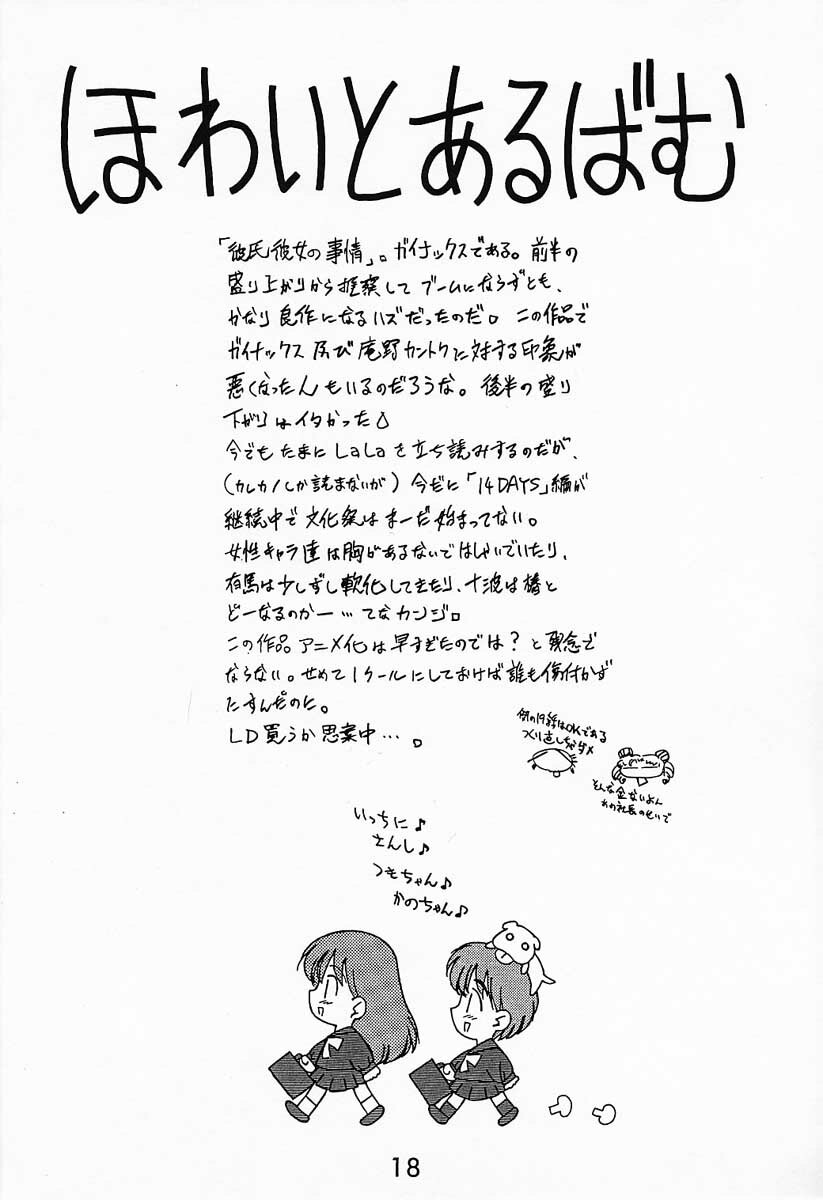 ほわいとあるばむ
「彼氏彼女の事情」。ガイナックスである。前半の
盛り上がりから推察してブームにならずとも、
かなり良作になるハズだったのだ。この作品で
ガイナックス及び庵野カントクに対する印象が
悪くなったんもいるのだろうな。後半の盛り
下がりはイタかった
今でもたまにLaLaを立ち読みするのだが、
(カレカノしか読まないが)今だに「14DAYS」編が
継続中で文化祭はまーだ始まってない。
女性キャラ達は胸があるないではしゃいでいたり、
有馬は少しずし軟化してきたり、十波は椿と
どーなるのかー…てなカンジ。
この作品アニメ化は早すぎたのでは?と残念で
ならない。せめて1クールにしておけば誰も傷付かず
たすんだのに。
LD買うか思案中…。
例の19話はOKである
つくり直しちゃダメ
そんな金ないよん
あの社長のせいで
いっちに♪
さんし♪
つきちゃん♪
かのちゃん♪
18